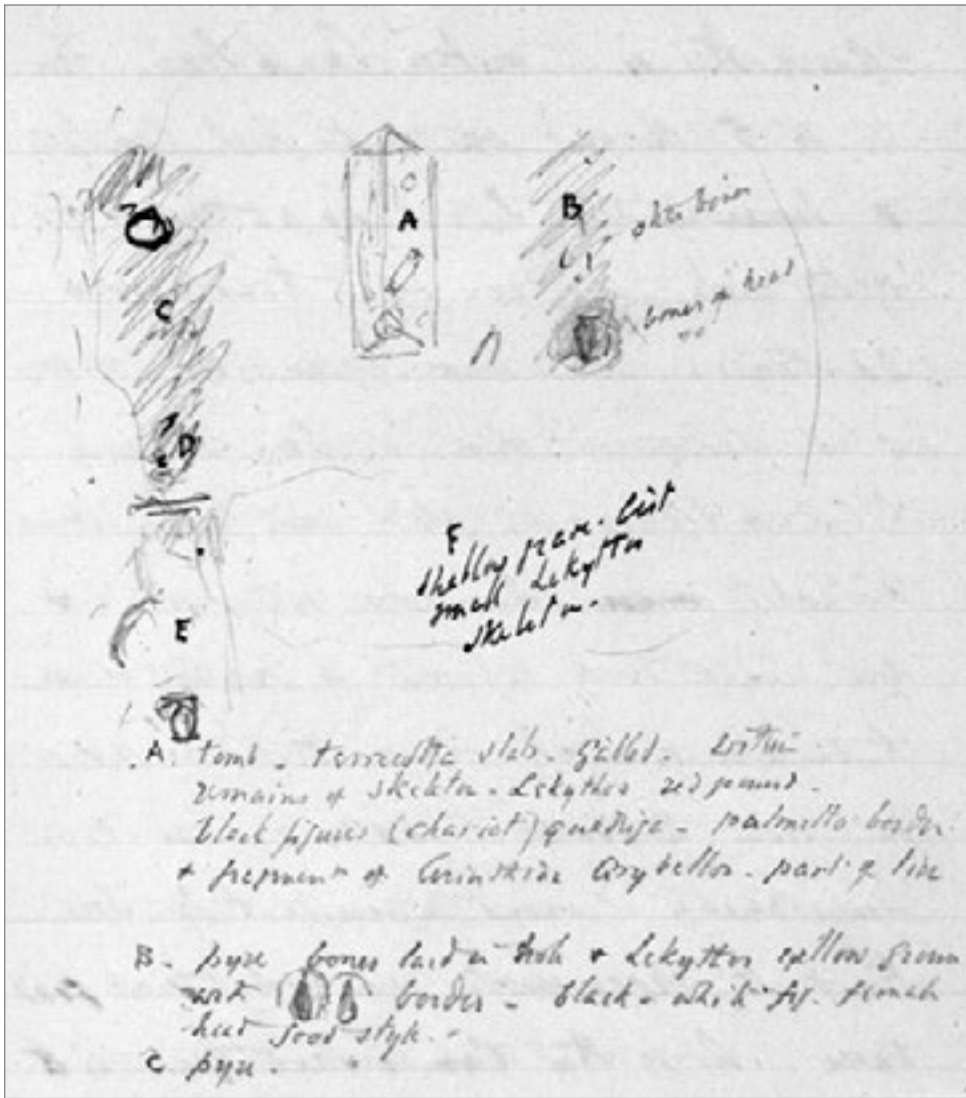 A
B
other bones
bones of head
C
D
E
F
shallow grave. Cist
small Lekythos
skeleton.
A tomb. terracotta slab. gabled. within
remains of skeleton. Lekythos red ground.
black figures (chariot) quadriga. palmette border.
+ fragment of Corinthian Aryballos. part of
B. pyre bones laid in + Lekythos yellow ground
with border - black + white fig. female
head good style.
C pyre.